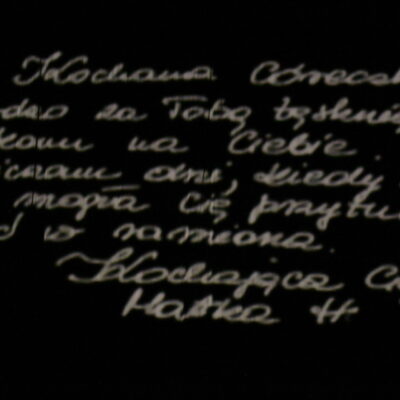 Kochana Córecz
dzo za Tobą tęsknię
kam na Ciebie.
iczam dni, kiedy
mogła Cię przytu
d w ramiona.
Kochająca C
Matka H